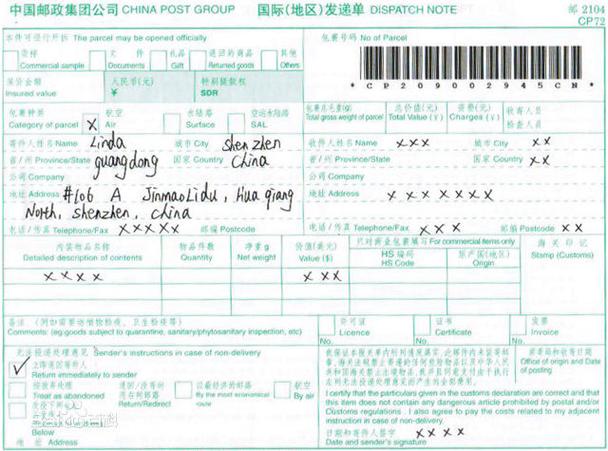 中国邮政集团公司 CHINA POST GROUP 国际(地区)发递单 DISPATCH NOTE 邮 2104
CP72
本件可径行开拆 The parcel may be opened officially
货样 Commercial sample
文件 Documents
礼品 Gift
退回的商品 Returned goods
其他 Others
包裹号码 No of Parcel
*CP209002945CN*
保价金额 Insured value
人民币(元) ¥
特别提款权 SDR
包裹种类 Category of parcel
X 航空 Air
水陆路 Surface
空运水陆路 SAL
包裹总毛重(g) Total gross weight of parcel
总价值(元) Total Value (¥)
资费(元) Charges (¥)
收寄人员
检查人员
寄件人姓名 Name Linda 城市 City shenzhen
省/州 Province/State guangdong 国家 Country China
公司 Company
地址 Address #106 A JinmaoLidu, Huaqiang
North, shenzhen, china
电话/传真 Telephone/Fax XXXXX 邮编 Postcode
收件人姓名 Name XXX 城市 City XX
省/州 Province/State 国家 Country XX
公司 Company
地址 Address XXXXXXX
电话/传真 Telephone/Fax XXX 邮编 Postcode XX
内装物品名称 Detailed description of contents
物品件数 Quantity
净重 g Net weight
价值(美元) Value ($)
只对商业包裹填写 For commercial items only
HS 编码 HS Code
原产国(地区) Origin
海关印记 Stamp (Customs)
XXXX XXX
备注 (例如需要送植物检疫、卫生检疫等)
Comments: (eg:goods subject to quarantine, sanitary/phytosanitary inspection, etc)
许可证 Licence No.
证书 Certificate No.
发票 Invoice No.
无法投递处理意见 Sender's instructions in case of non-delivery
✓ 立即退回寄件人
Return immediately to sender
按放弃处理 Treat as abandoned
退回/改寄 Return/Redirect
以最经济的邮路 By the most economical route
航空 By air
Below
地址 Address
I certify that the particulars given in the customs declaration are correct and that
this item does not contain any dangerous article prohibited by postal and/or
Customs regulations . I also agree to pay the costs related to my adjacent
instruction in case of non-delivery.
日期和寄件人签字 XXXX
Date and sender's signature
寄递局和收寄日期
Office of origin and Date of posting